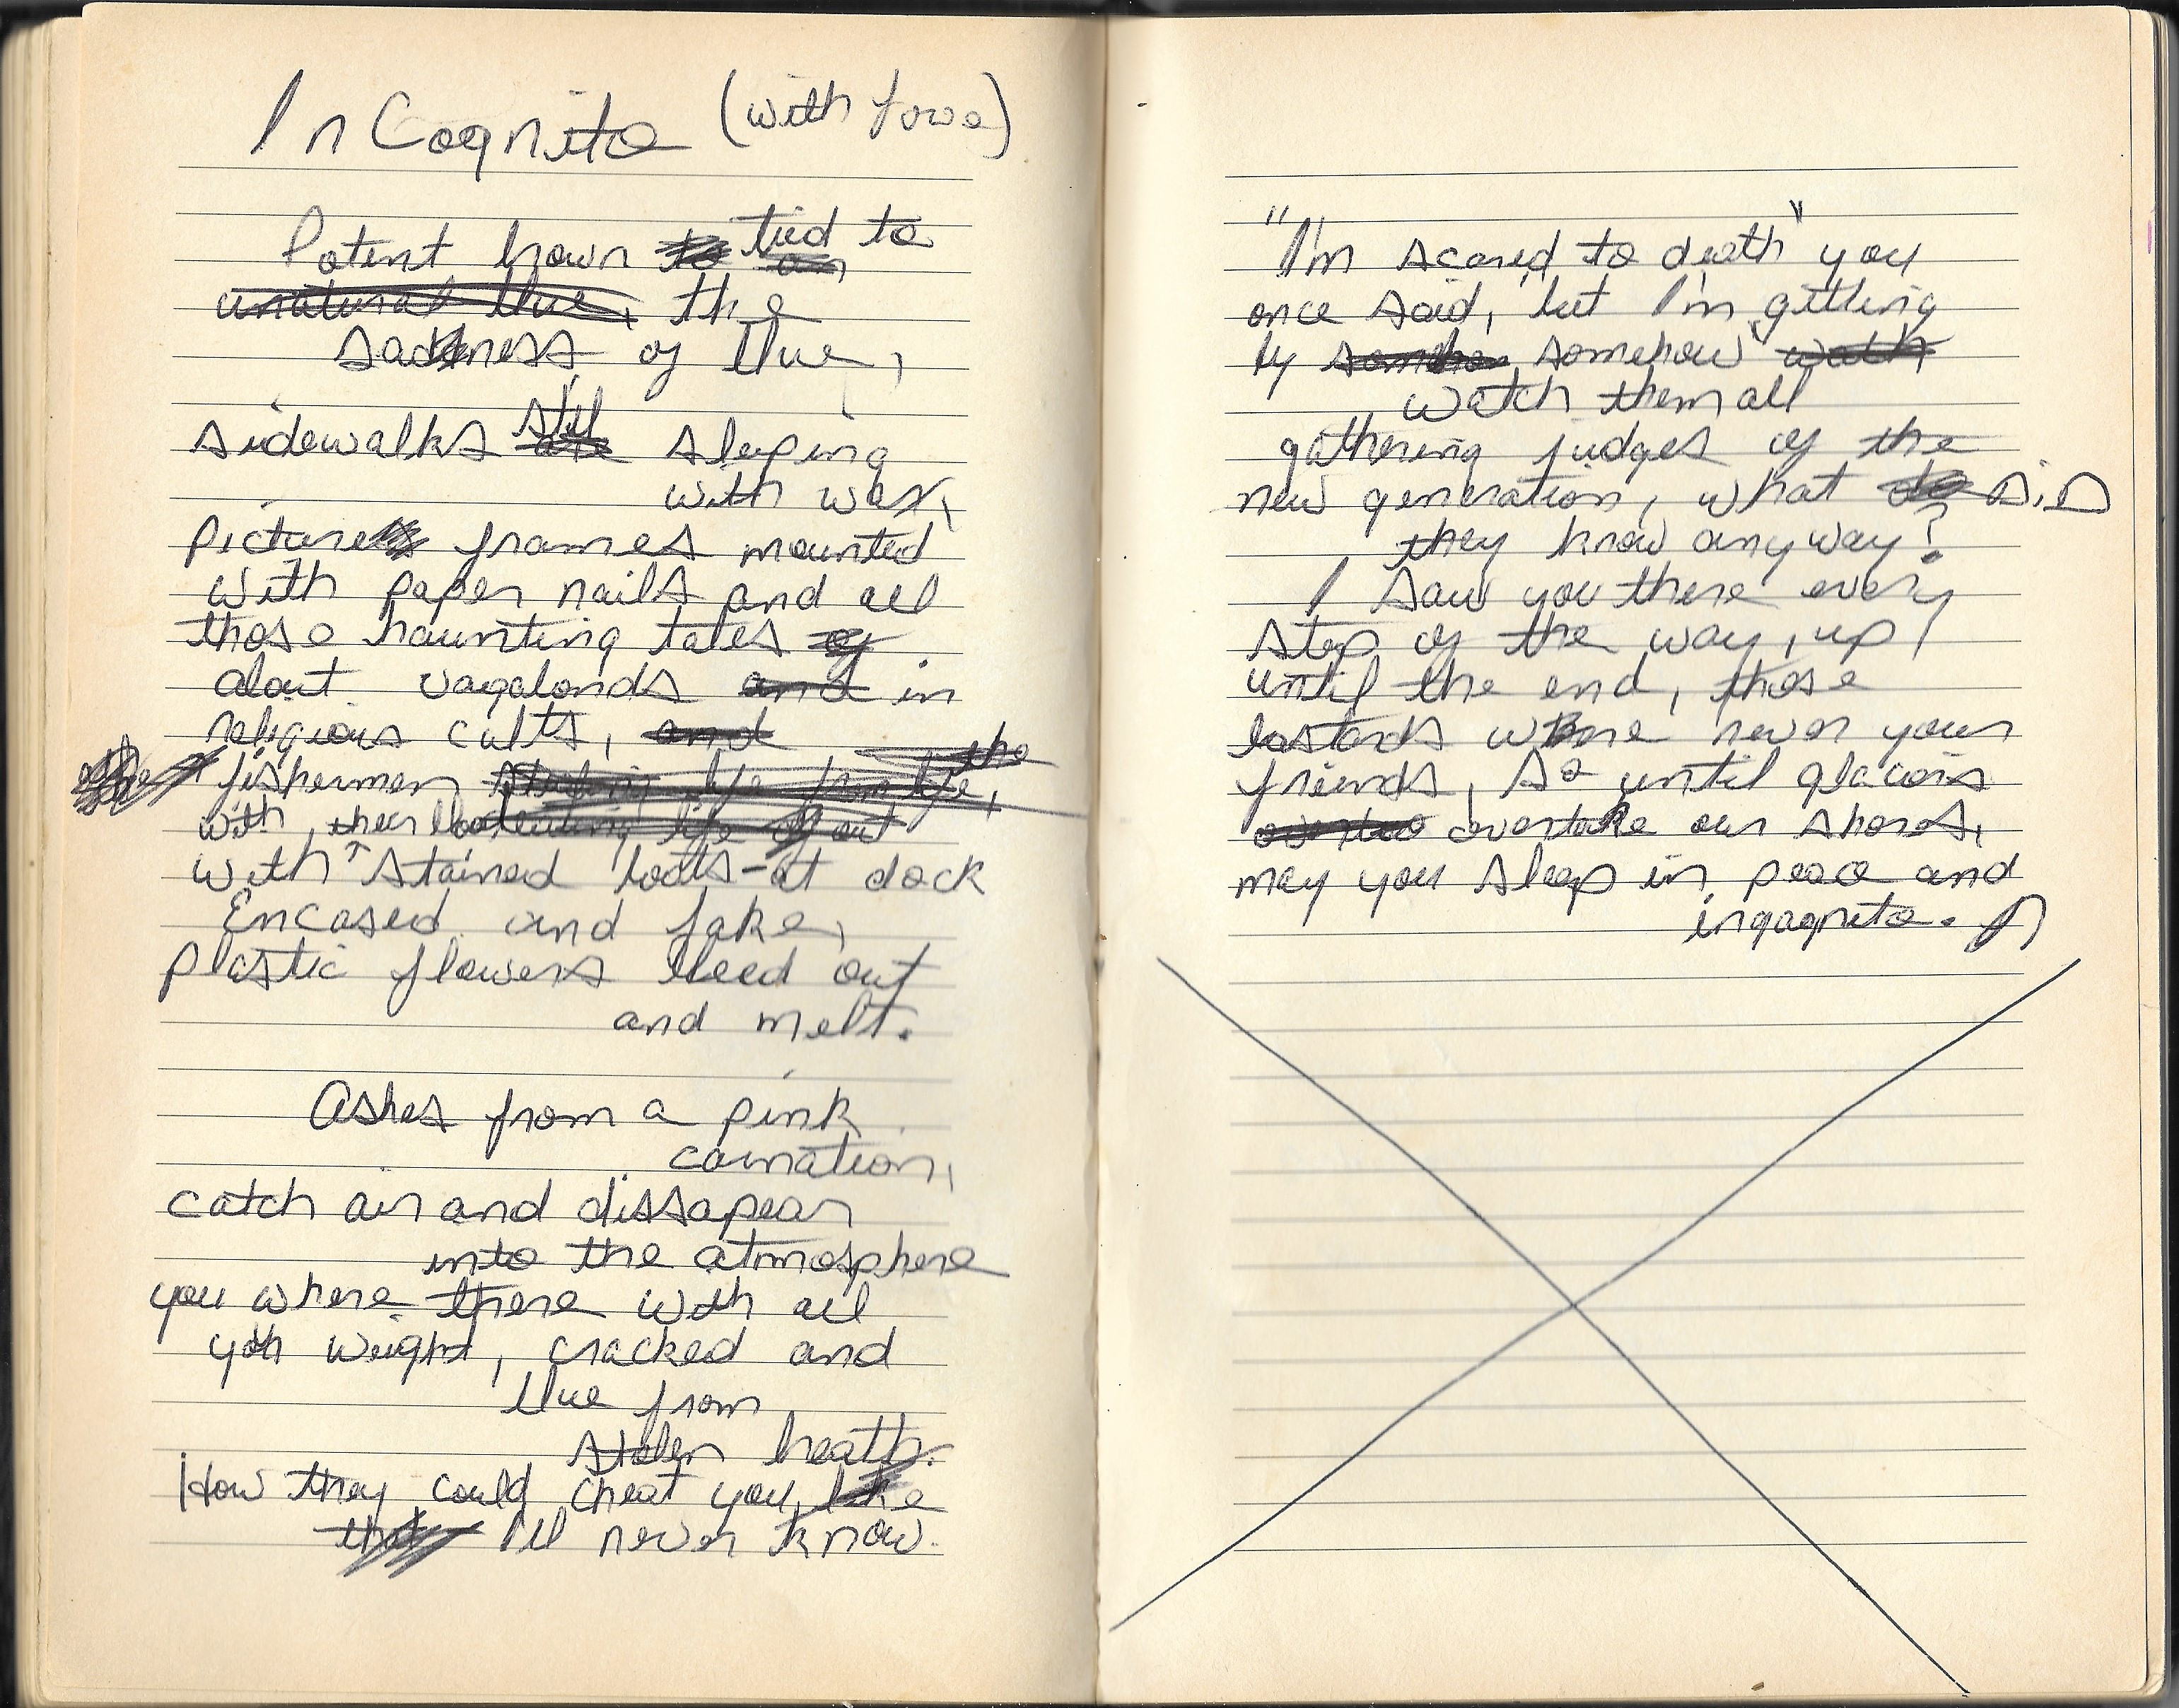 In Cognito (with love)
Potent brown to tied to
an
unatural blue, the
sadness of blue,
sidewalks are still sleeping
with wax,
Picture frames mounted
with paper nails and all
those haunting tales of
about vagabonds and in
religious cults, and
fishermen stealing life from life, the
with their life out
with stained boots-at dock
Encased and fake,
plastic flowers bleed out
and melt.
Ashes from a pink
carnation,
catch air and dissapear
into the atmosphere
you where there with all
your weight, cracked and
blue from
stolen breath.
How they could cheat you, like
that I'll never know.
"I'm scared to death" you
once said, "but I'm getting
by somehow somehow" watch
watch them all
gathering judges of the
new generation, what do DiD
they know anyway?
I saw you there every
step of the way, up
until the end, those
bastards where never your
friends, so until glaciers
overtake our shores,
may you sleep in peace and
ingognito.